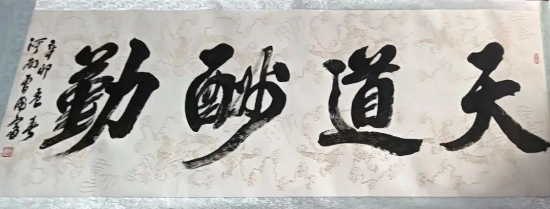 天道酬勤
辛卯春
河南曹国富